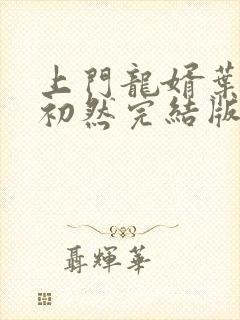 上門龍婿葉
初然完結版
聶輝華